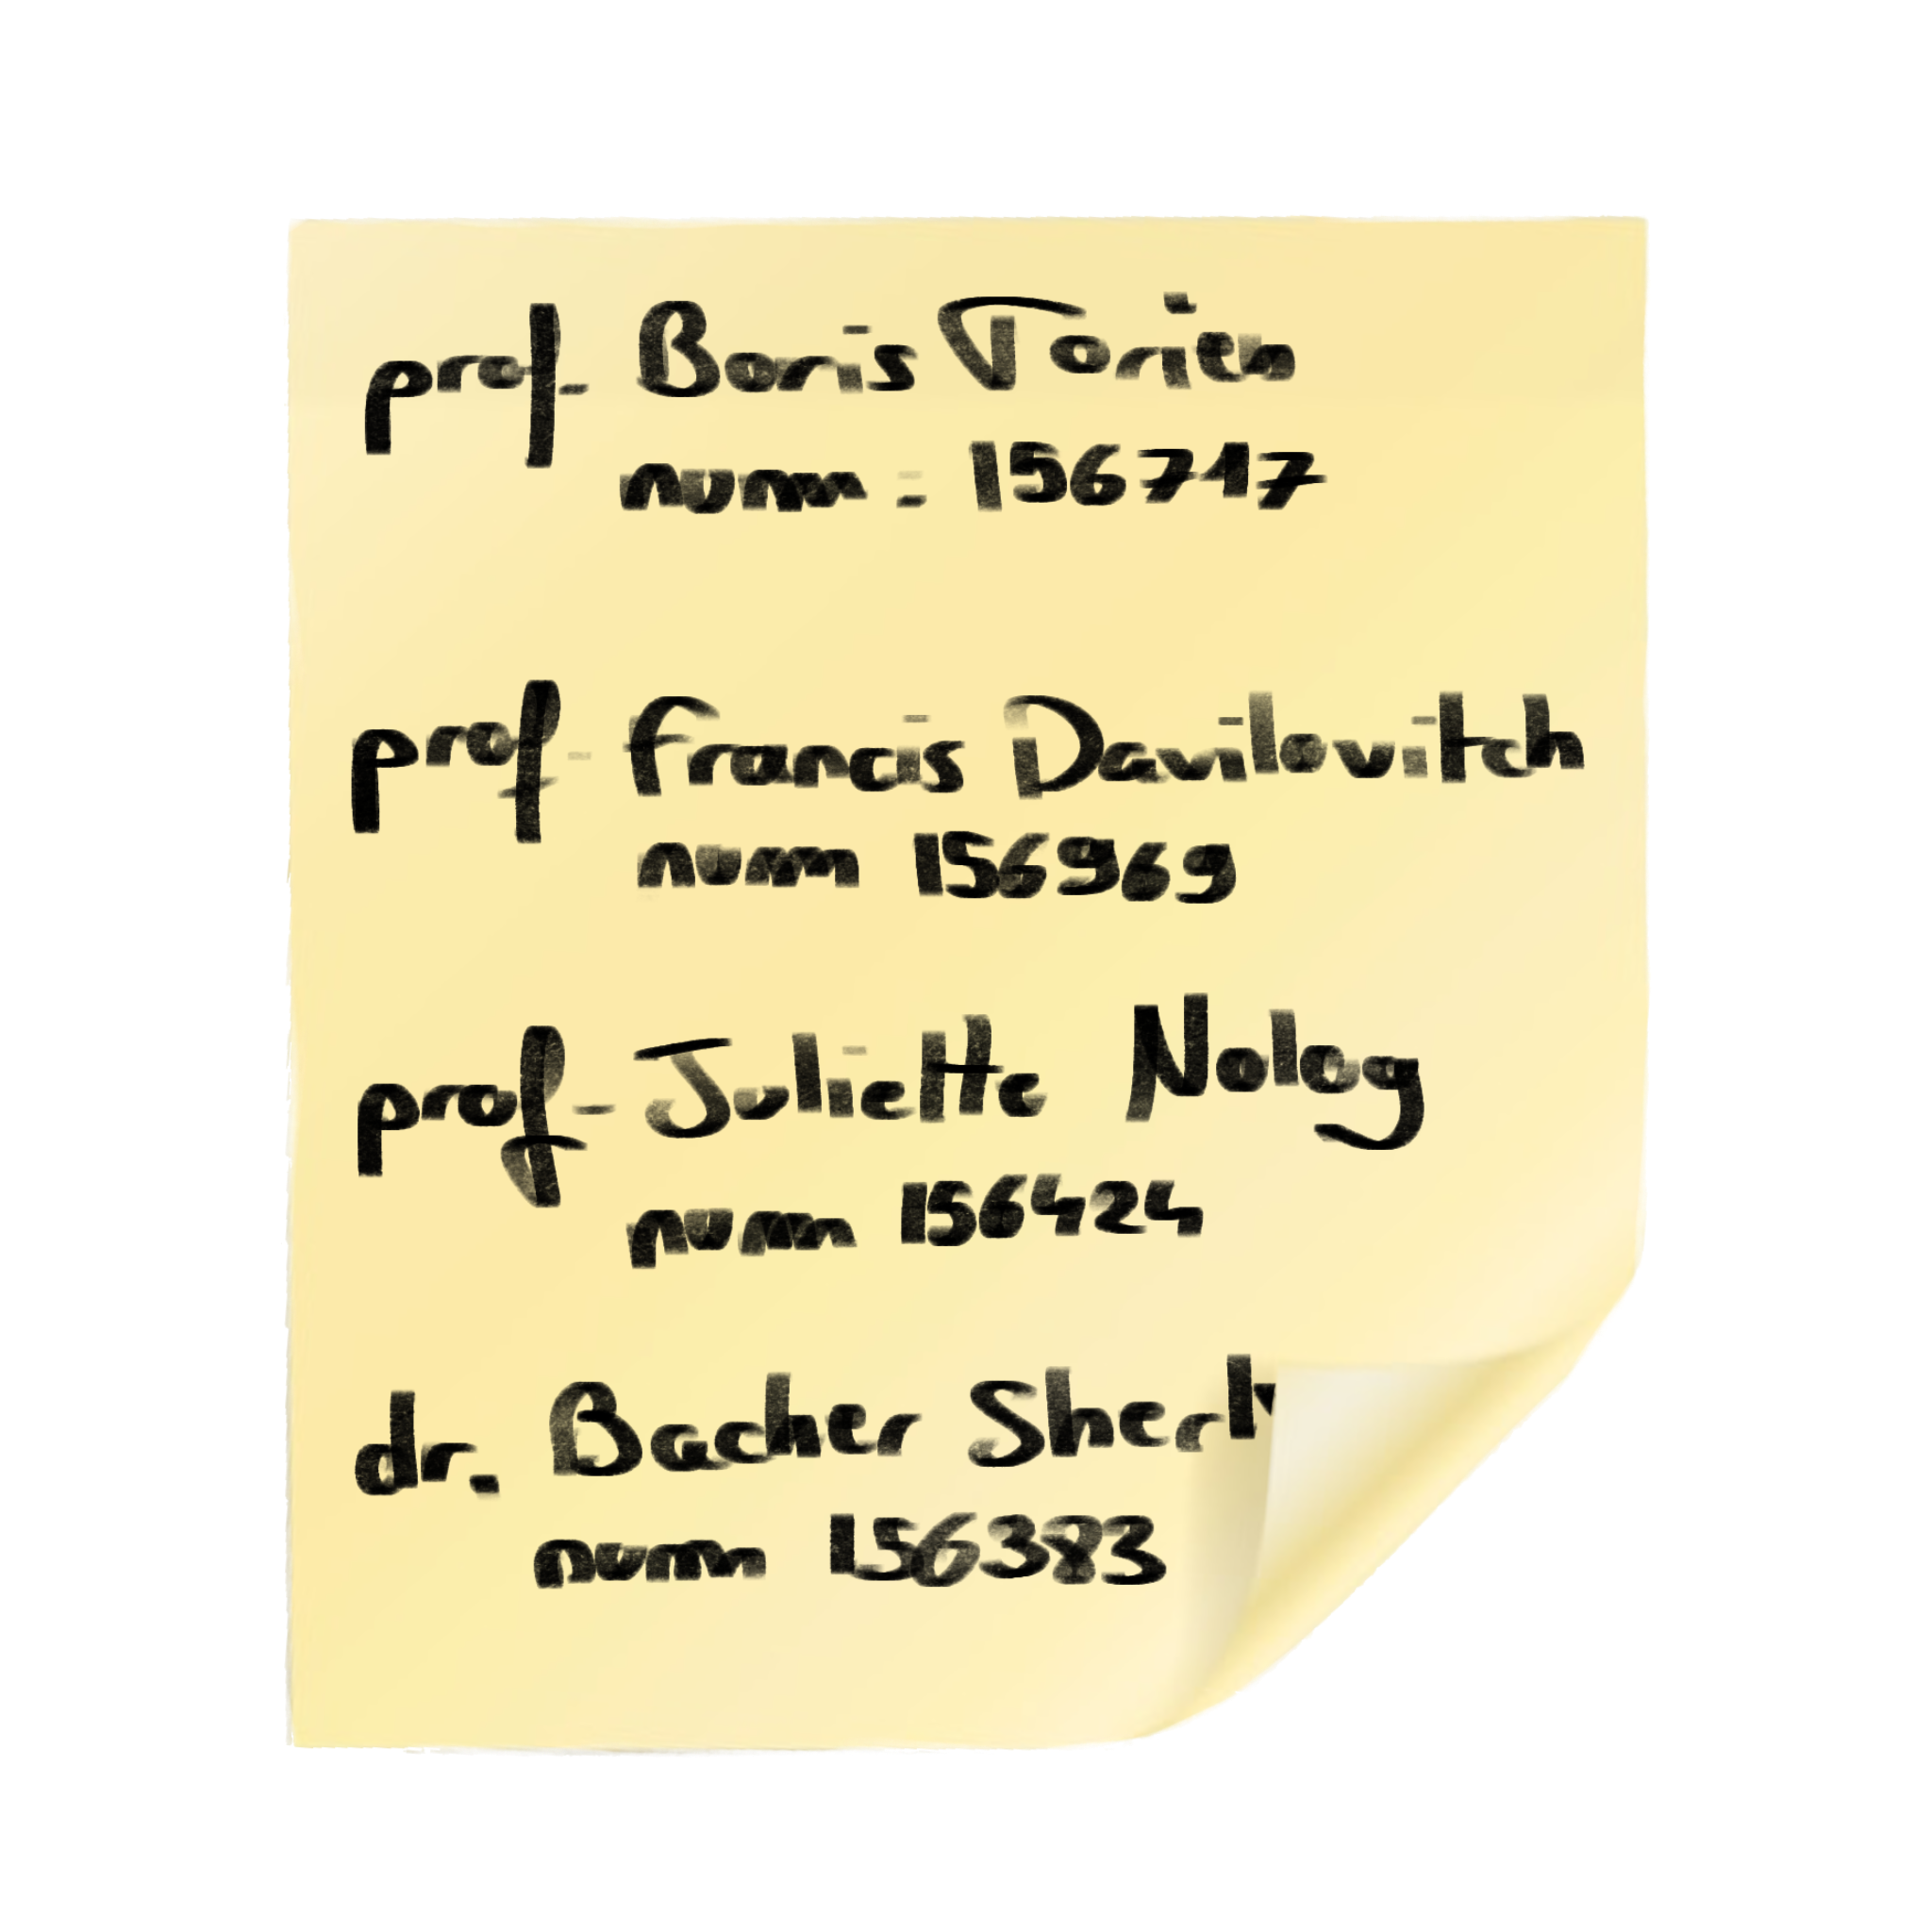 prof. Boris Torien
num : 156717
prof. Francis Davilovitch
num 156969
prof. Juliette Nolog
num 156424
dr. Bacher
num 156383